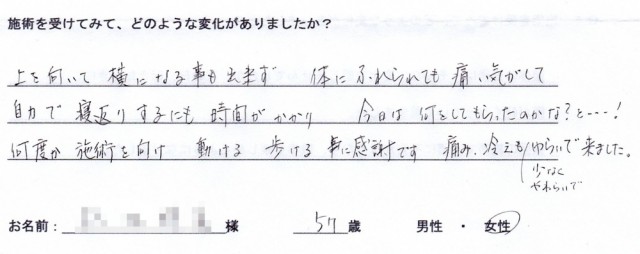 施術を受けてみて、どのような変化がありましたか？
上を向いて 横になる事も出来ず 体にふれられても痛い気がして
自力で寝返りするにも時間がかかり 今日は何をしてもらったのかな？と…！
何度か施術を向け 動ける 歩ける事に感謝です 痛み、冷えもやわらいで来ました。
少なく
やわらいで
お名前： 様 57歳 男性 ・ 女性